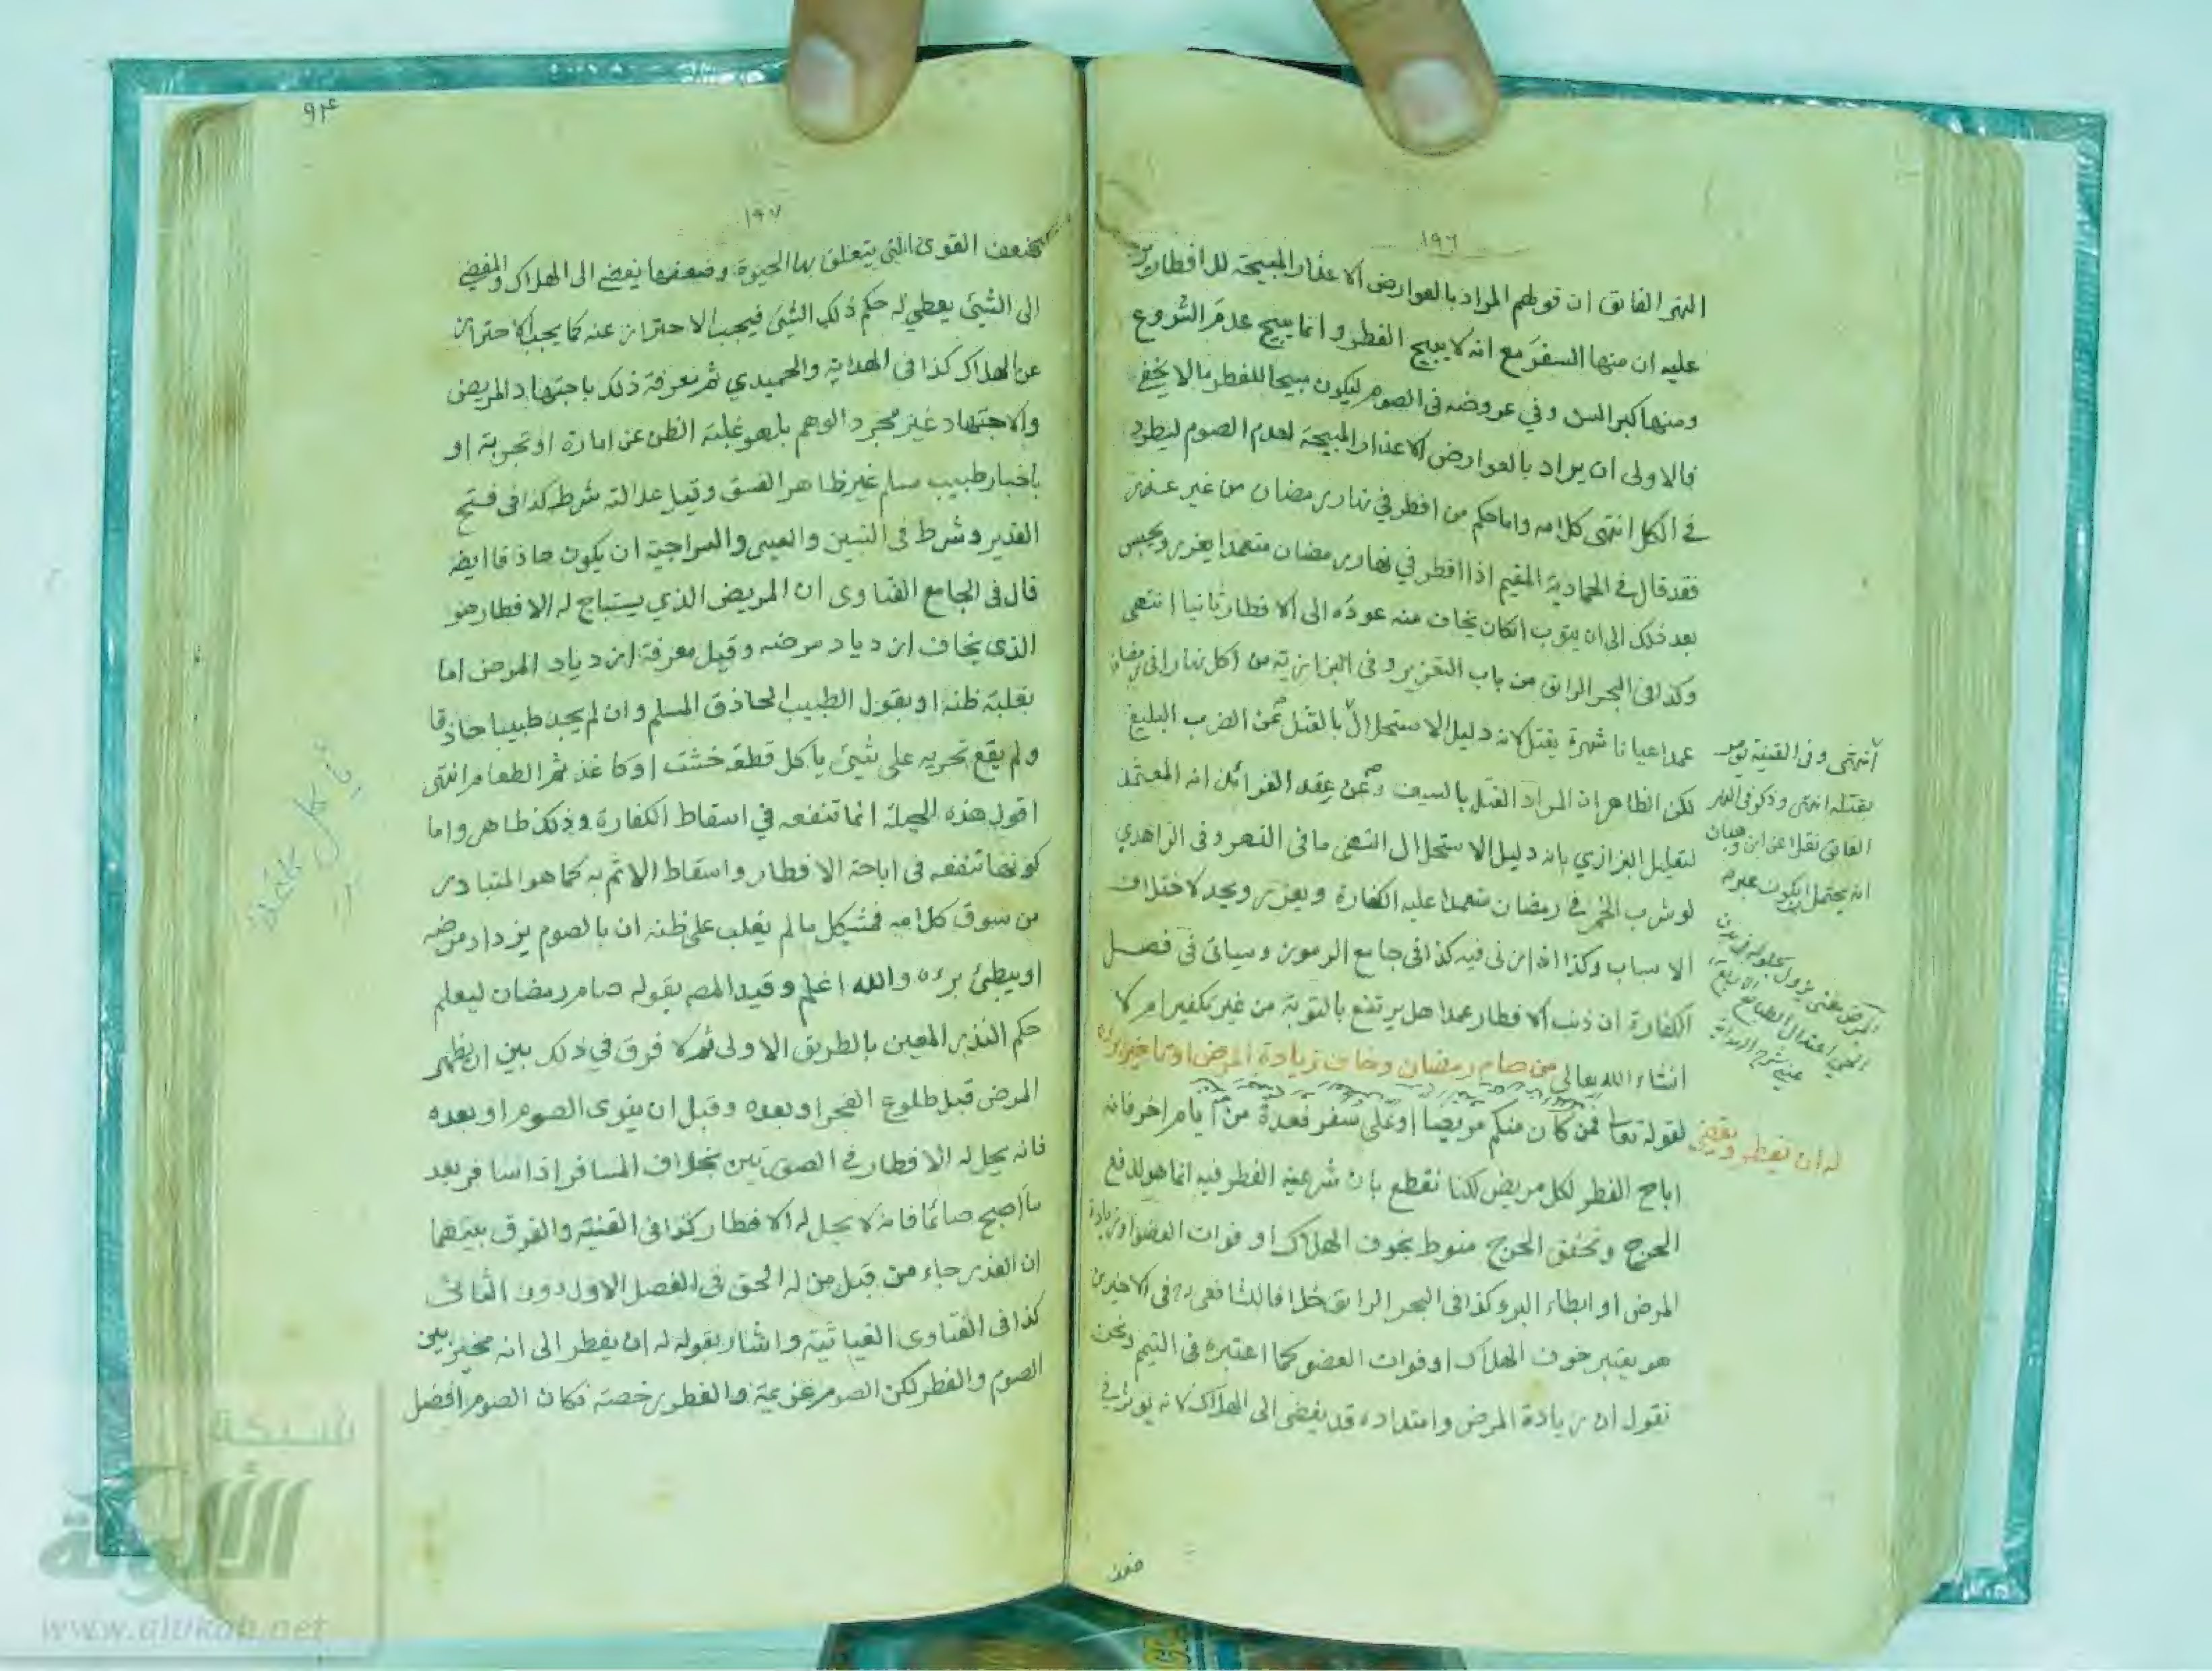 ١٩٦
النهر الفائق ان قولهم المراد بالعوارض الاعذار المبيحة للافطار يرد
عليه ان منها السفر مع انه لا يبيح الفطر وانما يبيح عدم الشروع
ومنها كبر السن وفي عروضه فى الصوم ليكون مبيحا للفطر ما لا يخفى
فالاولى ان يراد بالعوارض الاعذار المبيحة لعدم الصوم ليطرد
في الكل انتهى كلامه واما حكم من افطر في نهار رمضان من غير عذر
فقد قال في الحمادية المقيم اذا افطر في نهار رمضان متعمدا يعزر ويحبس
بعد ذلك الى ان يتوب انكان يخاف منه عوده الى الافطار ثانيا انتهى
وكذا فى البحر الرائق من باب التعزير وفى البزازية من اكل نهارا فى رمضان
عمدا عيانا شهرة يقتل لانه دليل الاستحلال بالقتل الضرب البليغ
لكن الظاهر ان المراد القتل بالسيف وعن عقد الفرائد انه المعتمد
لتعليل البزازي بانه دليل الاستحلال انتهى ما فى النهر وفى الزاهدي
لو شرب الخمر في رمضان متعمدا عليه الكفارة ويعزر ويحد لاختلاف
الاسباب وكذا اذا زنى فيه كذا فى جامع الرموز وسياتى فى فصل
الكفارة ان ذنب الافطار عمدا هل يرتفع بالتوبة من غير تكفير ام لا
انشاء الله تعالى من صام رمضان وخاف زيادة المرض او تاخير برئه
له ان يفطر ويقضي
لقوله تعا فمن كان منكم مريضا او على سفر فعدة من ايام اخر فانه
اباح الفطر لكل مريض لكنا نقطع بان شرعية الفطر فيه انما هو لدفع
الحرج وتحقق الحرج منوط بخوف الهلاك او فوات العضو او زيادة
المرض او ابطاء البرو كذا فى البحر الرائق خلافا للشافعى رح فى الاخيرين
هو يعتبر خوف الهلاك او فوات العضو كما اعتبره فى التيمم ونحن
نقول ان زيادة المرض وامتداده قد يفضى الى الهلاك لانه يوثر في
ضعف
انتهى وفى القنية
بقتله انتهى وذكر فى النهر
الفائق نقلا عن ابن وهبان
انه يحتمل ان يكون
المرض معنى يزول بحلوله فى بدن
الحي اعتدال الطبائع الاربع
عينى شرح الهداية
٩٤
١٩٧
ضعف القوى التي يتعلق بها الحيوة وضعفها يفضي الى الهلاك والمفضي
الى الشيئ يعطي له حكم ذلك الشيئ فيجب الاحتراز عنه كما يجب الاحتراز
عن الهلاك كذا فى الهداية والحميدي ثم معرفة ذلك باجتهاد المريض
والاجتهاد غير مجرد الوهم بل هو غلبة الظن عن امارة او تجربة او
باخبار طبيب مسلم غير ظاهر الفسق وقيل عدالته شرط كذا فى فتح
القدير وشرط فى التبيين والعينى والسراجية ان يكون حاذقا ايضا
قال فى الجامع الفتاوى ان المريض الذي يستباح له الافطار هو
الذى يخاف ازدياد مرضه وقيل معرفة ازدياد المرض اما
بغلبة ظنه او بقول الطبيب الحاذق المسلم وان لم يجد طبيبا حاذقا
ولم يقع تحريه على شيئ ياكل قطعة خشت او كاغذ ثم الطعام انتهى
اقول هذه الحيلة انما تنفعه في اسقاط الكفارة وذلك ظاهر واما
كونها تنفعه فى اباحة الافطار واسقاط الاثم به كما هو المتبادر
من سوق كلامه فمشكل ما لم يغلب على ظنه ان بالصوم يزداد مرضه
او يبطئ برءه والله اعلم وقيد المص بقوله صام رمضان ليعلم
حكم النذر المعين بالطريق الاولى ثم لا فرق في ذلك بين ان يظهر
المرض قبل طلوع الفجر او بعده وقبل ان ينوى الصوم او بعده
فانه يحل له الافطار في الصورتين بخلاف المسافر اذا سافر بعد
ما اصبح صائما فانه لا يحل له الافطار كذا فى القنية والفرق بينهما
ان العذر جاء من قبل من له الحق فى الفصل الاول دون الثانى
كذا فى الفتاوى الغياثية واشار بقوله له ان يفطر الى انه مخير بين
الصوم والفطر لكن الصوم عزيمة والفطر رخصة فكان الصوم افضل
ياكل كاغذ
شبكة
الألوكة
www.alukah.net